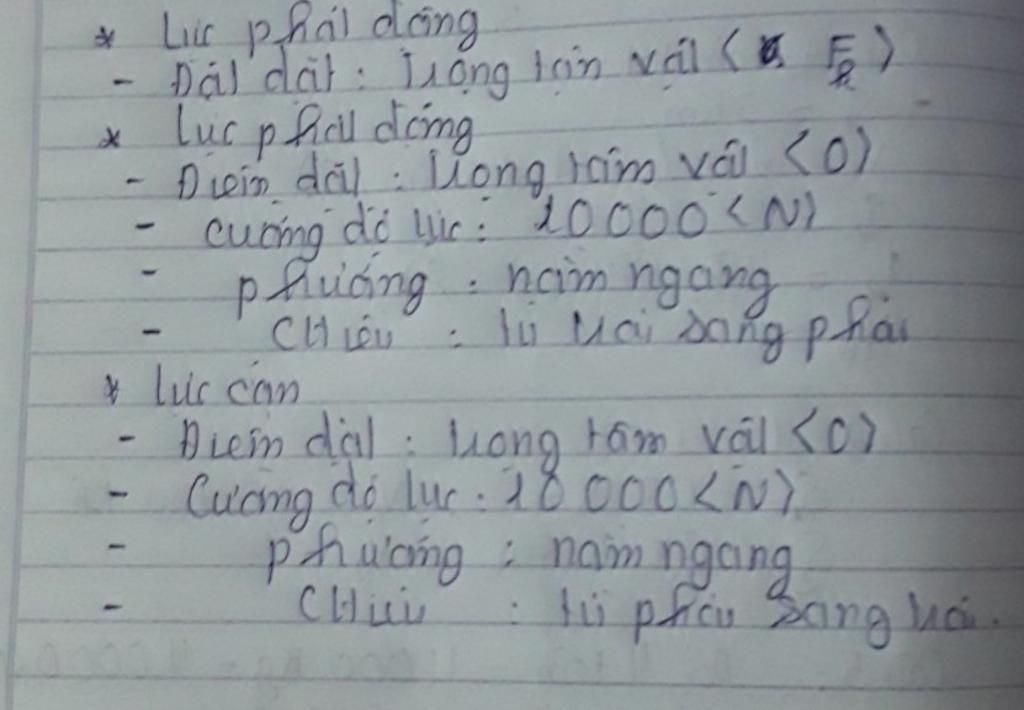 * Lực phát động
- Đặt đặt : Trọng tâm vật ( F )
* Lực phát động
- Điểm đặt : Trọng tâm vật (O)
- Cường độ lực : 10000 (N)
- phương : nằm ngang
- Chiều : từ trái sang phải
* Lực cản
- Điểm đặt : Trọng tâm vật (O)
- Cường độ lực : 10 000 (N)
- phương : nằm ngang
- Chiều : từ phải sang trái.